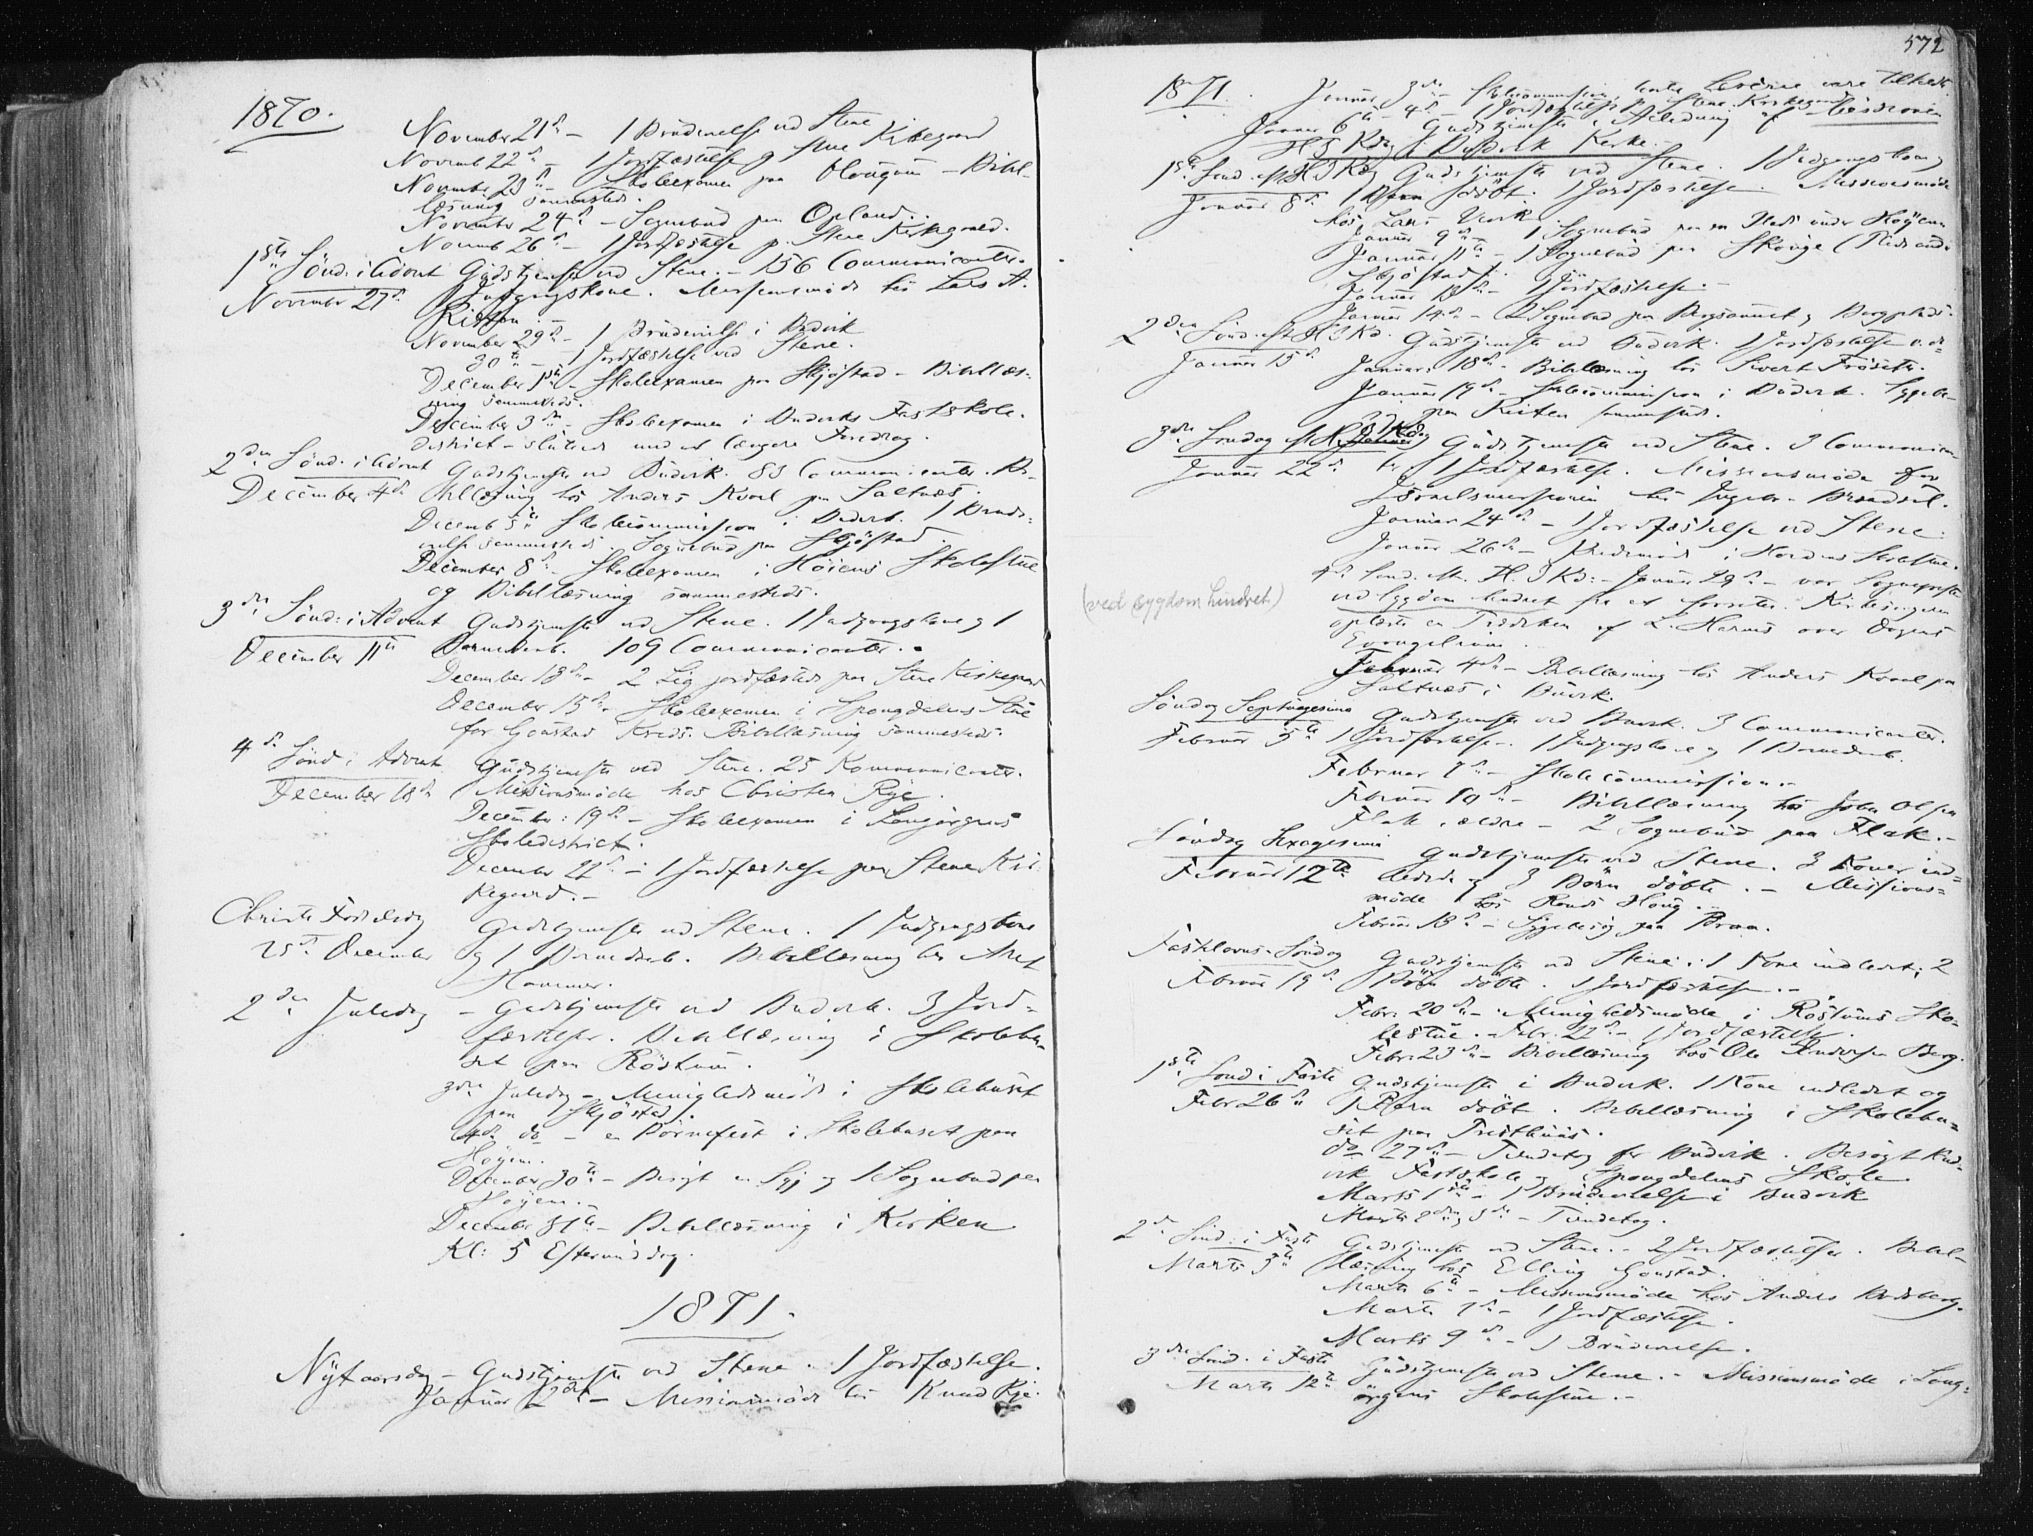 1870.
November 21de – 1 Brudevielse ved Stene
Novemb 22de – 1 Jordfæstelse p Stene Kirkegaard
November 23de – Skoleexamen paa Hougum – Bibel-
læsning sammesteds.
November 24de – Sognebud paa Opland.
Novemb 26de – 1 Jordfæstelse p. Stene Kirkegaard.
1ste Sönd. i Advent Gudstjeneste ved Stene. – 156 Communicanter.
November 27de 1 Indgangskone. Missionsmöde hos Lars A.
November 29de – 1 Brudevielse i Budvik
30te – 1 Jordfæstelse ved Stene.
December 1ste – Skoleexamen paa Skjöstad – Bibellæs-
ning sammesteds.
December 3die – Skoleexamen i Budviks Fastskole-
district – sluttede med et længere Foredrag.
2den Sönd. i Advent Gudstjeneste ved Budvik. 83 Communicanter. Bi-
December 4de bellæsning hos Anders Kvaal paa Saltnæs.
Decemb 5te Skolecommission i Budvik. 1 Brude-
vielse sammesteds. Sognebud paa Skjöstad.
December 8de – Skoleexamen i Höiens Skolestue
og Bibellæsning sammesteds.
3die Sönd: i Advent Gudstjeneste ved Stene. 1 Indgangskone og 1
December 11te Barnedaab. 109 Communicanter.
December 13de – 2 Lig jordfæstede paa Stene Kirkegaard
December 15de Skoleexamen i Spongdalens Stue
for Gonstad Kreds. Bibellæsning sammesteds.
4de Sönd i Advent Gudstjeneste ved Stene. 25 Kommunicanter.
December 18de Missionsmöde hos Christen Rye.
December: 19de – Skoleexamen i Langörgens
Skoledistrict.
December 22de – 1 Jordfæstelse paa Stene Kir-
kegaard. –
Christi Födselsdag Gudstjeneste ved Stene. 1 Indgangskone
25de December og 1 Barnedaab. Bibellæsning hos
Hammer.
2den Juledag – Gudstjeneste ved Budvik. 3 Jord-
fæstelser. Bibellæsning i Skolehu-
set paa Röstum.
3die Juledag – Menighedsmöde i Skolehuset
paa Skjöstad.
4de do – en Börnefest i Skolehuset paa
Höyem.
December 30te – Besögt en Syg og 1 Sognebud paa
Höyem. –
December 31te – Bibellæsning i Kirken
Kl: 5 Eftermiddag.
1871.
Nytaarsdag – Gudstjeneste ved Stene. 1 Jordfæstelse.
Januar 2den – Missionsmöde hos Knud Rye.
572
1871. Januar 3die – Skolecommission, hvortil Lærerne vare tilkaldt.
4de – 1 Jordfæstelse p Stene Kirkegaard
Januar 6te Gudstjeneste i Anledning af Missionen
H 3 Kdag i Budvik Kirke.
1ste Sönd. eft H 3 Kdg Gudstjeneste ved Stene. 1 Indgangskone,
Januar 8de 1 Barn döbt. 1 Jordfæstelse. Missionsmöde
hos Lars
Januar 9de 1 Sognebud paa en Plads under Höyem
Januar 11te – 1 Sognebud paa Skauge (Plads under
Skjöstad).
1 Jordfæstelse. –
Januar 14de – 2 Sognebud paa
2den Sönd. eft H 3 Kd. Gudstjeneste ved Budvik. 1 Jordfæstelse
Januar 15de Januar 18de – Bibellæsning hos Sivert Fröseth.
Januar 19de – Skolecommission i Budvik. Sygebe-
sög paa sammesteds.
3die Söndag eft H 3 Kdag Gudstjeneste ved Stene. 3 Communican-
Januar 22de ter 1 Jordfæstelse. Missionsmöde for
Israelsmissionen hos
Januar 24de – 1 Jordfæstelse ved Stene.
Januar 26de – i Skolestue.
4de Sönd. eft. H. 3 Kd: – Januar 29de – var Sognepræsten
ved Sygdom hindret fra at forrette. Kirkesangeren
(ved sygdom hindret)
oplæste en Prædiken af L. Harms over Dagens
Evangelium.
Februar 4de – Bibellæsning hos Anders Kvaal paa
Saltnæs i Buvik.
Söndag Septuagesima Gudstjeneste ved Buvik. 3 Communicanter.
Februar 5te 1 Jordfæstelse. 1 Indgangskone og 1 Barnedaab.
Februar 7de – Skolecommission. –
Februar 10de – Bibellæsning hos John Olsen
Flak ældre – 2 Sognebud paa Flak. –
Söndag Sexagesima Gudstjeneste ved Stene. 3 Koner ind-
Februar 12te ledede og 3 Börn döbte. – Missions-
möde hos
Februar 13de – Sygebesög paa Braa.
Fastelavns-Söndag Gudstjeneste ved Stene: 1 Kone indledet; 2
Februar 19de Börn döbte. 1 Jordfæstelse. –
Febr. 20de – Menighedsmöde i Röstums Sko-
lestue. – Febr. 22de – 1 Jordfæstelse.
Febr. 23de – Bibellæsning hos Ole Andersen Berg.
1ste Sönd i Faste Gudstjeneste i Budvik. 1 Kone indledet og
Febr 26de 1 Barn döbt. Bibellæsning i Skolehu-
set paa
do 27de – Tiendetag for Budvik. Besögt Bud-
vik Fastskole og Spongdalens Skole.
Marts 1ste – 1 Brudevielse i Budvik
Marts 2den og 3die – Tiendetag.
2den Sönd: i Faste Gudstjeneste ved Stene. – 2 Jordfæstelser. Bibel-
Marts 5te læsning hos Elling Gonstad.
Marts 6te – Missionsmöde hos Anders
Marts 7de – 1 Jordfæstelse.
Marts 9de – 1 Brudevielse.
3die Sönd. i Faste Gudstjeneste ved Stene. – Missionsmöde i Lang-
Marts 12te örgens Skolestue. –